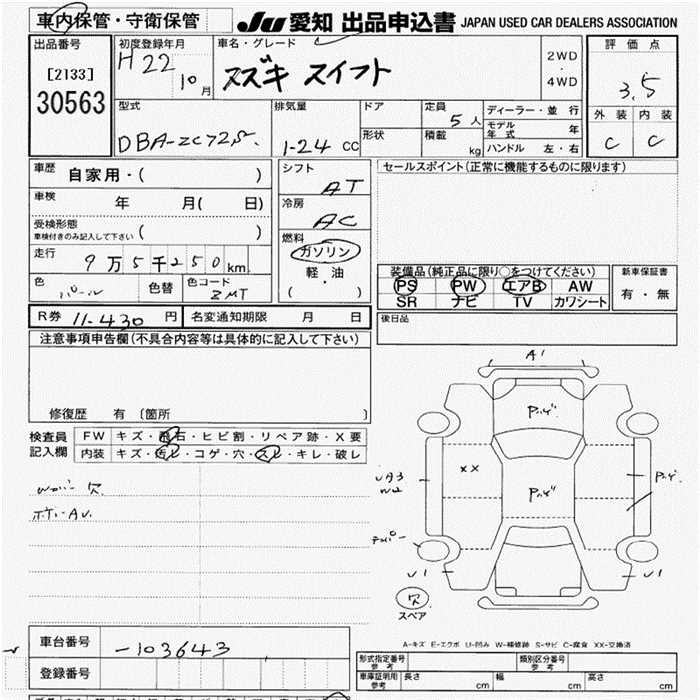 車内保管・守衛保管
JU 愛知 出品申込書 JAPAN USED CAR DEALERS ASSOCIATION
出品番号
[2133]
30563
初度登録年月
H22 10月
車名・グレード
スズキ スイフト
2WD
・
4WD
評価点
3.5
外装 内装
C C
型式
DBA-ZC72S
排気量
1-24 CC
ドア
形状
定員
5人
積載
kg
ディーラー・並行
モデル年式 年
ハンドル 左・右
車歴 自家用・( )
車検 年 月( 日)
受検形態
車検付きのみ記入して下さい ( )
走行 9万5千250km
色 パール 色替 色コード ZMT
シフト
AT
冷房
AC
燃料
ガソリン
軽・油
( )
セールスポイント(正常に機能するものに限ります)
装備品(純正品に限り○をつけてください)
PS PW エアB AW
SR ナビ TV カワシート
新車保証書
有・無
後日品
R券 11-430円 名変通知期限 月 日
注意事項申告欄(不具合内容等は具体的に記入して下さい)
修復歴 有〔箇所 〕
検査員記入欄
FW キズ・飛石・ヒビ割・リペア跡・X要
内装 キズ・汚レ・コゲ・穴・スレ・キレ・破レ
欠
A1
P
P
XX
UA3
W2
P
U1
U1
欠
スペア
A-キズ E-エクボ U-凹み W-補修跡 S-サビ C-腐食 XX-交換済
車台番号 -103643
登録番号
形式指定番号 参考
類別区分番号 参考
車庫証明用 参考 長さ cm 幅 cm 高さ cm